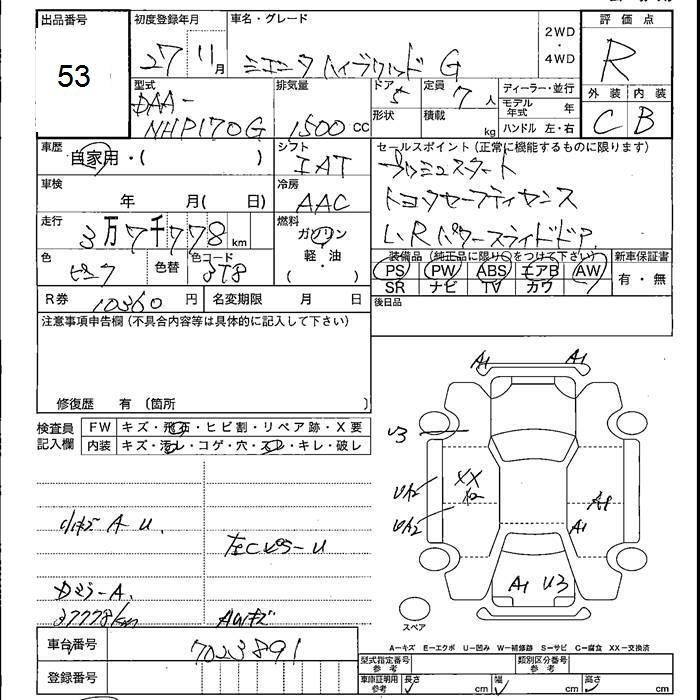 出品番号
53
初度登録年月
27 11月
車名・グレード
シエンタ ハイブリッド G
2WD
・
4WD
評価点
R
外装 内装
C B
型式
DAA-
NHP170G
排気量
1500 cc
ドア 5
形状
定員 7 人
積載 kg
ディーラー・並行
モデル年式 年
ハンドル 左・右
車歴
自家用・( )
シフト
IAT
車検
年 月( 日)
冷房
AAC
走行
3万7千778 km
燃料
ガソリン
・
軽油
( )
色
ピンク
色替
色コード
3T8
セールスポイント(正常に機能するものに限ります)
プッシュスタート
トヨタセーフティセンス
L・Rパワースライドドア
装備品(純正品に限り○をつけて下さい)
PS PW ABS エアB AW
SR ナビ TV カワ
新車保証書
有・無
後日品
R券 10360 円
名変期限 月 日
注意事項申告欄(不具合内容等は具体的に記入して下さい)
修復歴 有 〔箇所 〕
検査員
記入欄
FW キズ・飛石・ヒビ割・リペア跡・X要
内装 キズ・汚レ・コゲ・穴・スレ・キレ・破レ
小キズ A U.
左Cピラ-U
37778km
AWキズ
A1 A1
U3
XX
UA2
UA2
A1
A1 U3
スペア
A−キズ E−エクボ U−凹み W−補修跡 S−サビ C−腐食 XX−交換済
車台番号
7023891
登録番号
型式指定番号
参考
類別区分番号
参考
車庫証明用
参考
長さ cm
幅 cm
高さ cm